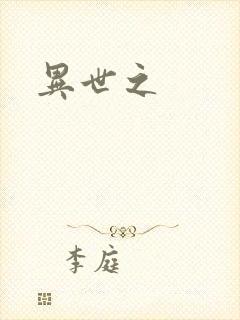 異世之
李庭